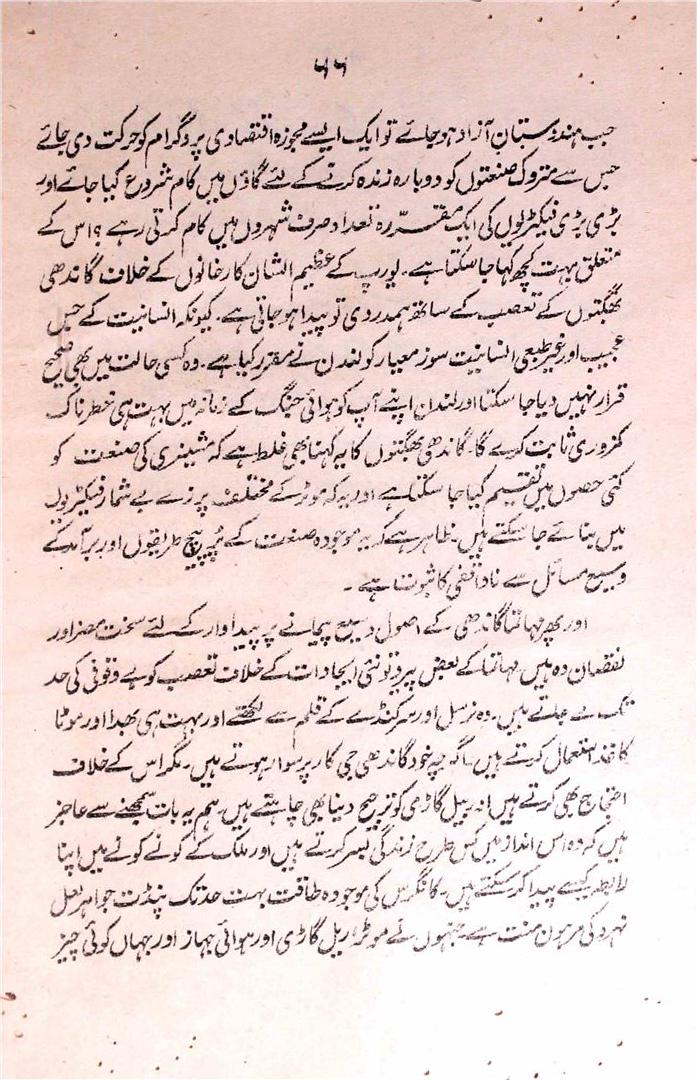 ۵۵
جب ہندوستان آزاد ہو جائے تو ایک ایسے مجوزہ اقتصادی پروگرام کو حرکت دی جائے
جس سے متروک صنعتوں کو دوبارہ زندہ کرنے کے لئے گاؤں میں کام شروع کیا جائے اور
بڑی بڑی فیکٹریوں کی ایک مقررہ تعداد صرف شہروں میں کام کرتی رہے ؟ اس کے
متعلق بہت کچھ کہا جا سکتا ہے۔ یورپ کے عظیم الشان کارخانوں کے خلاف گاندھی
بھگتوں کے تعصب کے ساتھ ہمدردی تو پیدا ہو جاتی ہے۔ کیونکہ انسانیت کے جس
عجیب اور غیر طبعی انسانیت سوز معیار کو لندن نے مقرر کیا ہے۔ وہ کسی حالت میں بھی صحیح
قرار نہیں دیا جا سکتا اور لندن اپنے آپ کو ہوائی جنگ کے زمانہ میں بہت ہی خطرناک
کمزوری ثابت کرے گا۔ گاندھی بھگتوں کا یہ کہنا بھی غلط ہے کہ مشینری کی صنعت کو
کئی حصوں میں تقسیم کیا جا سکتا ہے اور یہ کہ موٹر کے مختلف پرزے بے شمار فیکٹریوں
میں بنائے جا سکتے ہیں۔ ظاہر ہے کہ یہ موجودہ صنعت کے پُرپیچ طریقوں اور برآمد کے
وسیع مسائل سے ناواقفی کا ثبوت ہے ۔
اور پھر مہاتما گاندھی کے اصول وسیع پیمانے پر پیداوار کے لئے سخت مضر اور
نقصان دہ ہیں۔ مہاتما کے بعض پیرو تو نئی ایجادات کے خلاف تعصب کو بے وقوفی کی حد
تک لے جاتے ہیں۔ وہ نرسل اور سرکنڈے کے قلم سے لکھتے اور بہت ہی بھدا اور موٹا
کاغذ استعمال کرتے ہیں۔ اگرچہ خود گاندھی جی کار پر سوار ہوتے ہیں۔ مگر اس کے خلاف
احتجاج بھی کرتے ہیں اور بیل گاڑی کو ترجیح دینا بھی چاہتے ہیں۔ ہم یہ بات سمجھنے سے عاجز
ہیں کہ وہ اس انداز میں کس طرح زندگی بسر کرتے ہیں اور ملک کے کونے کونے میں اپنا
رابطہ کیسے پیدا کر سکتے ہیں۔ کانگرس کی موجودہ طاقت بہت حد تک پنڈت جواہر لعل
نہرو کی مرہون منت ہے۔ جنہوں نے موٹر، ریل گاڑی اور ہوائی جہاز اور جہاں کوئی چیز